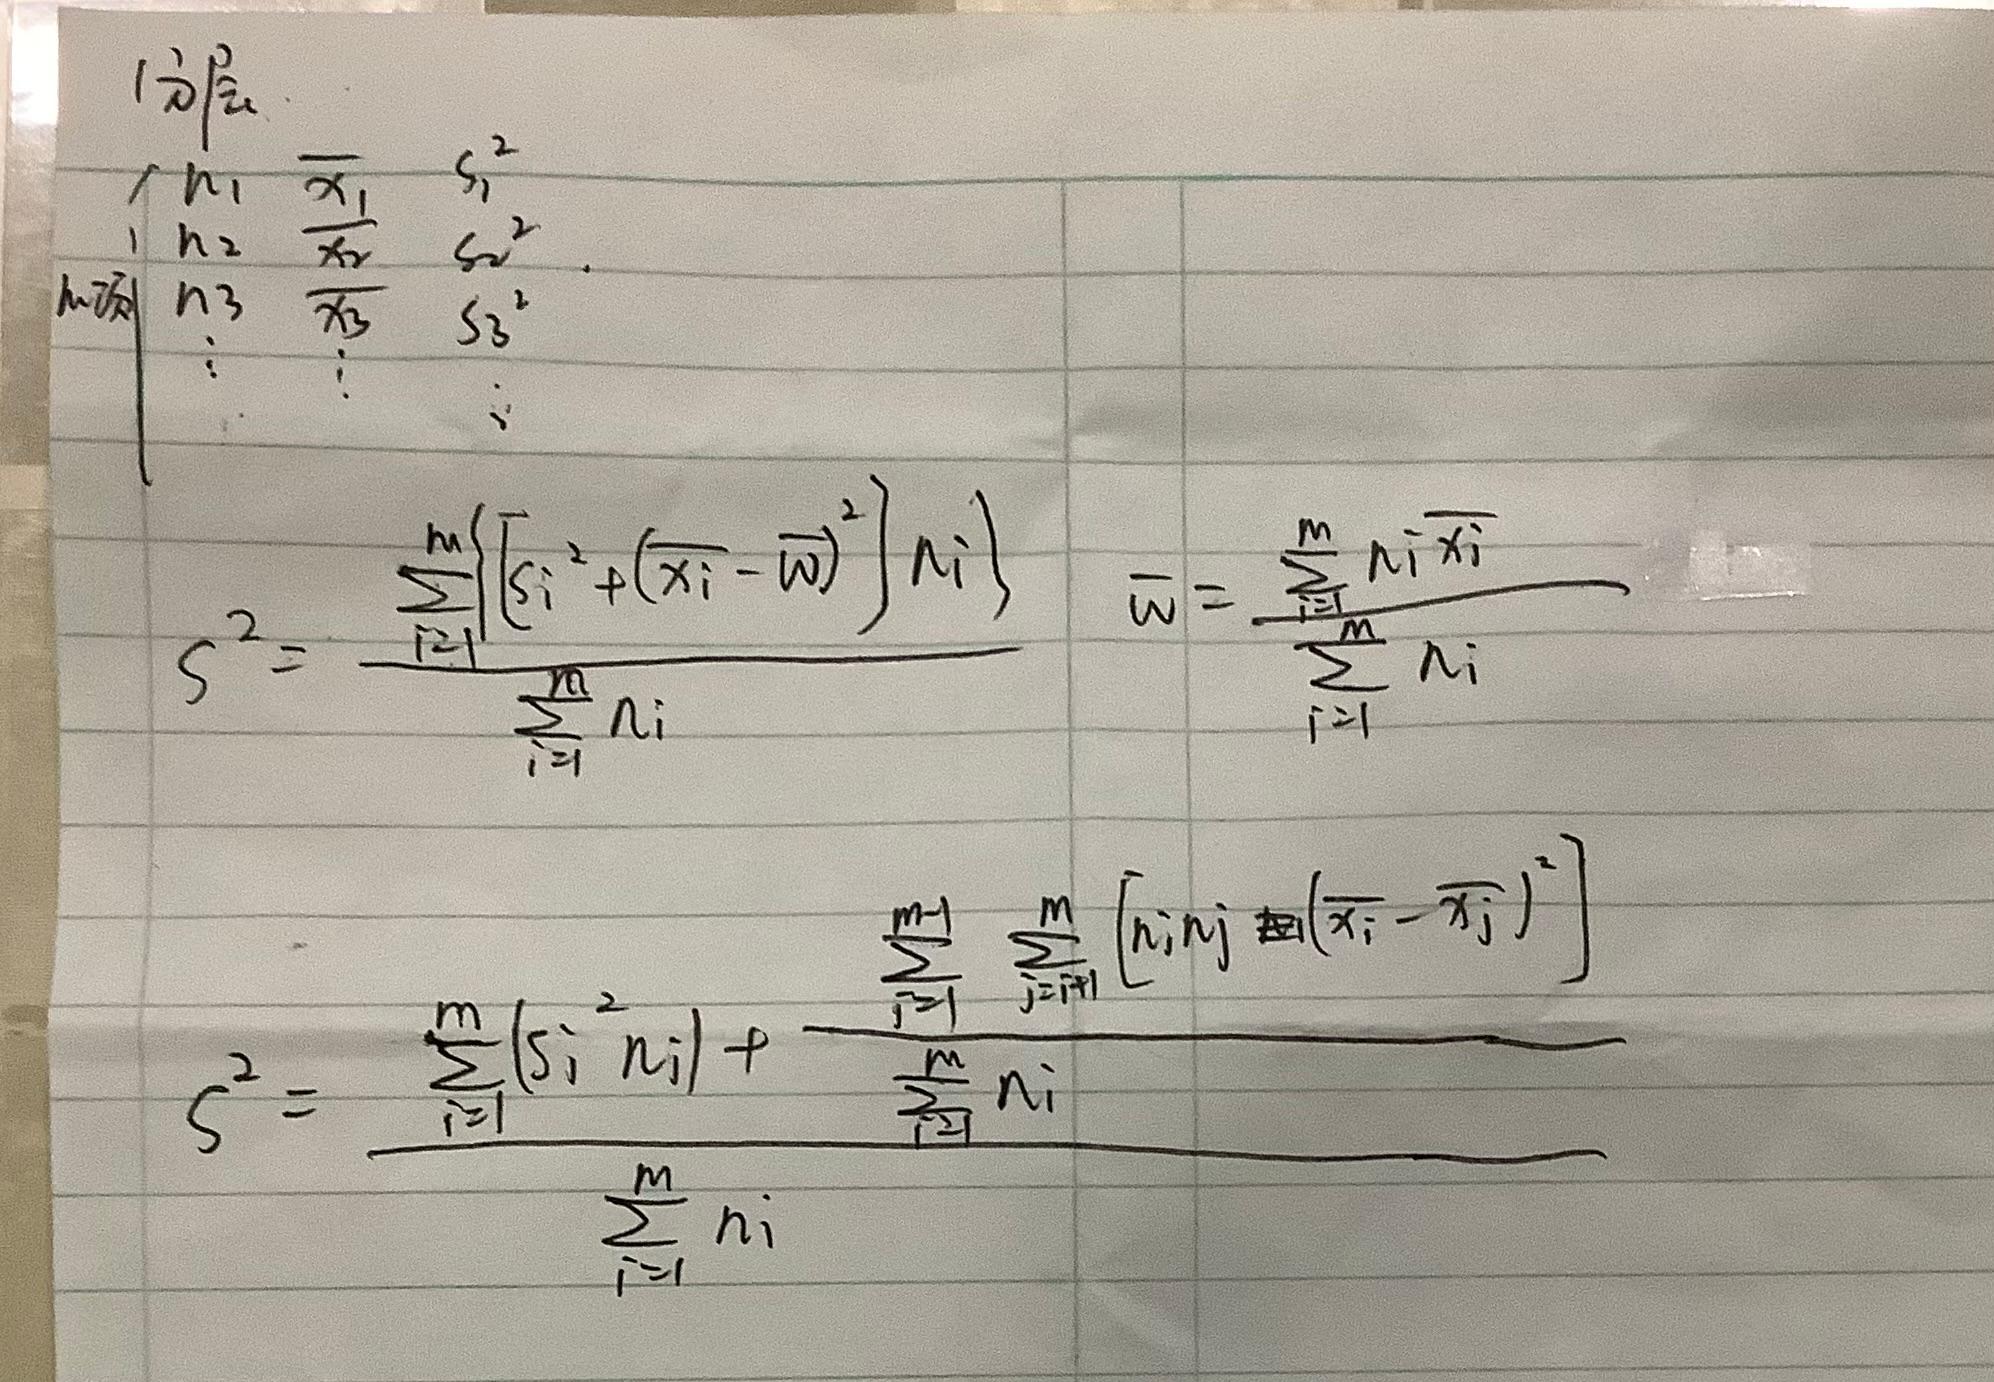 分层
n₁ x̄₁ s₁²
n₂ x̄₂ s₂²
m项 n₃ x̄₃ s₃²
⋮ ⋮ ⋮
s² = \frac{\sum_{i=1}^{m}\{[s_i^2+(\overline{x_i}-\overline{w})^2]n_i\}}{\sum_{i=1}^{m}n_i} \overline{w} = \frac{\sum_{i=1}^{m}n_i\overline{x_i}}{\sum_{i=1}^{m}n_i}
s² = \frac{\sum_{i=1}^{m}(s_i^2n_i)+\frac{\sum_{i=1}^{m-1}\sum_{j=i+1}^{m}[n_in_j(\overline{x_i}-\overline{x_j})^2]}{\sum_{i=1}^{m}n_i}}{\sum_{i=1}^{m}n_i}